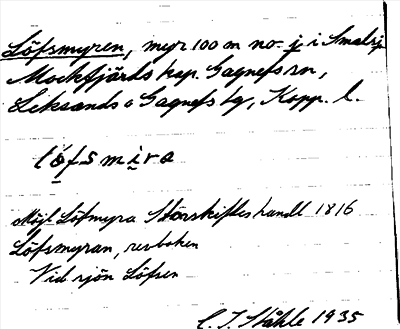 Löfsmyren, myr 100 m no. i i Smalsj
Mockfjärds kap. Gagnefs sn,
Leksands o Gagnefs tg, Kopp. l.
löfsmira
Möjl. Löfmyra Storskifteshandl 1816
Löfsmyran, revboken
Vid sjön Löfsen
C. I. Ståhle 1935